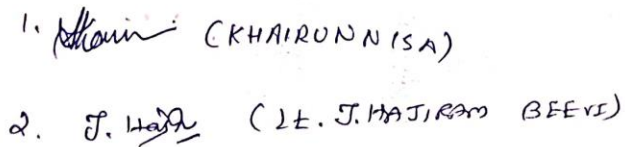 1. (KHAIRUNNISA)
2. J. (Lt. J. HAJIRAM BEEVI)